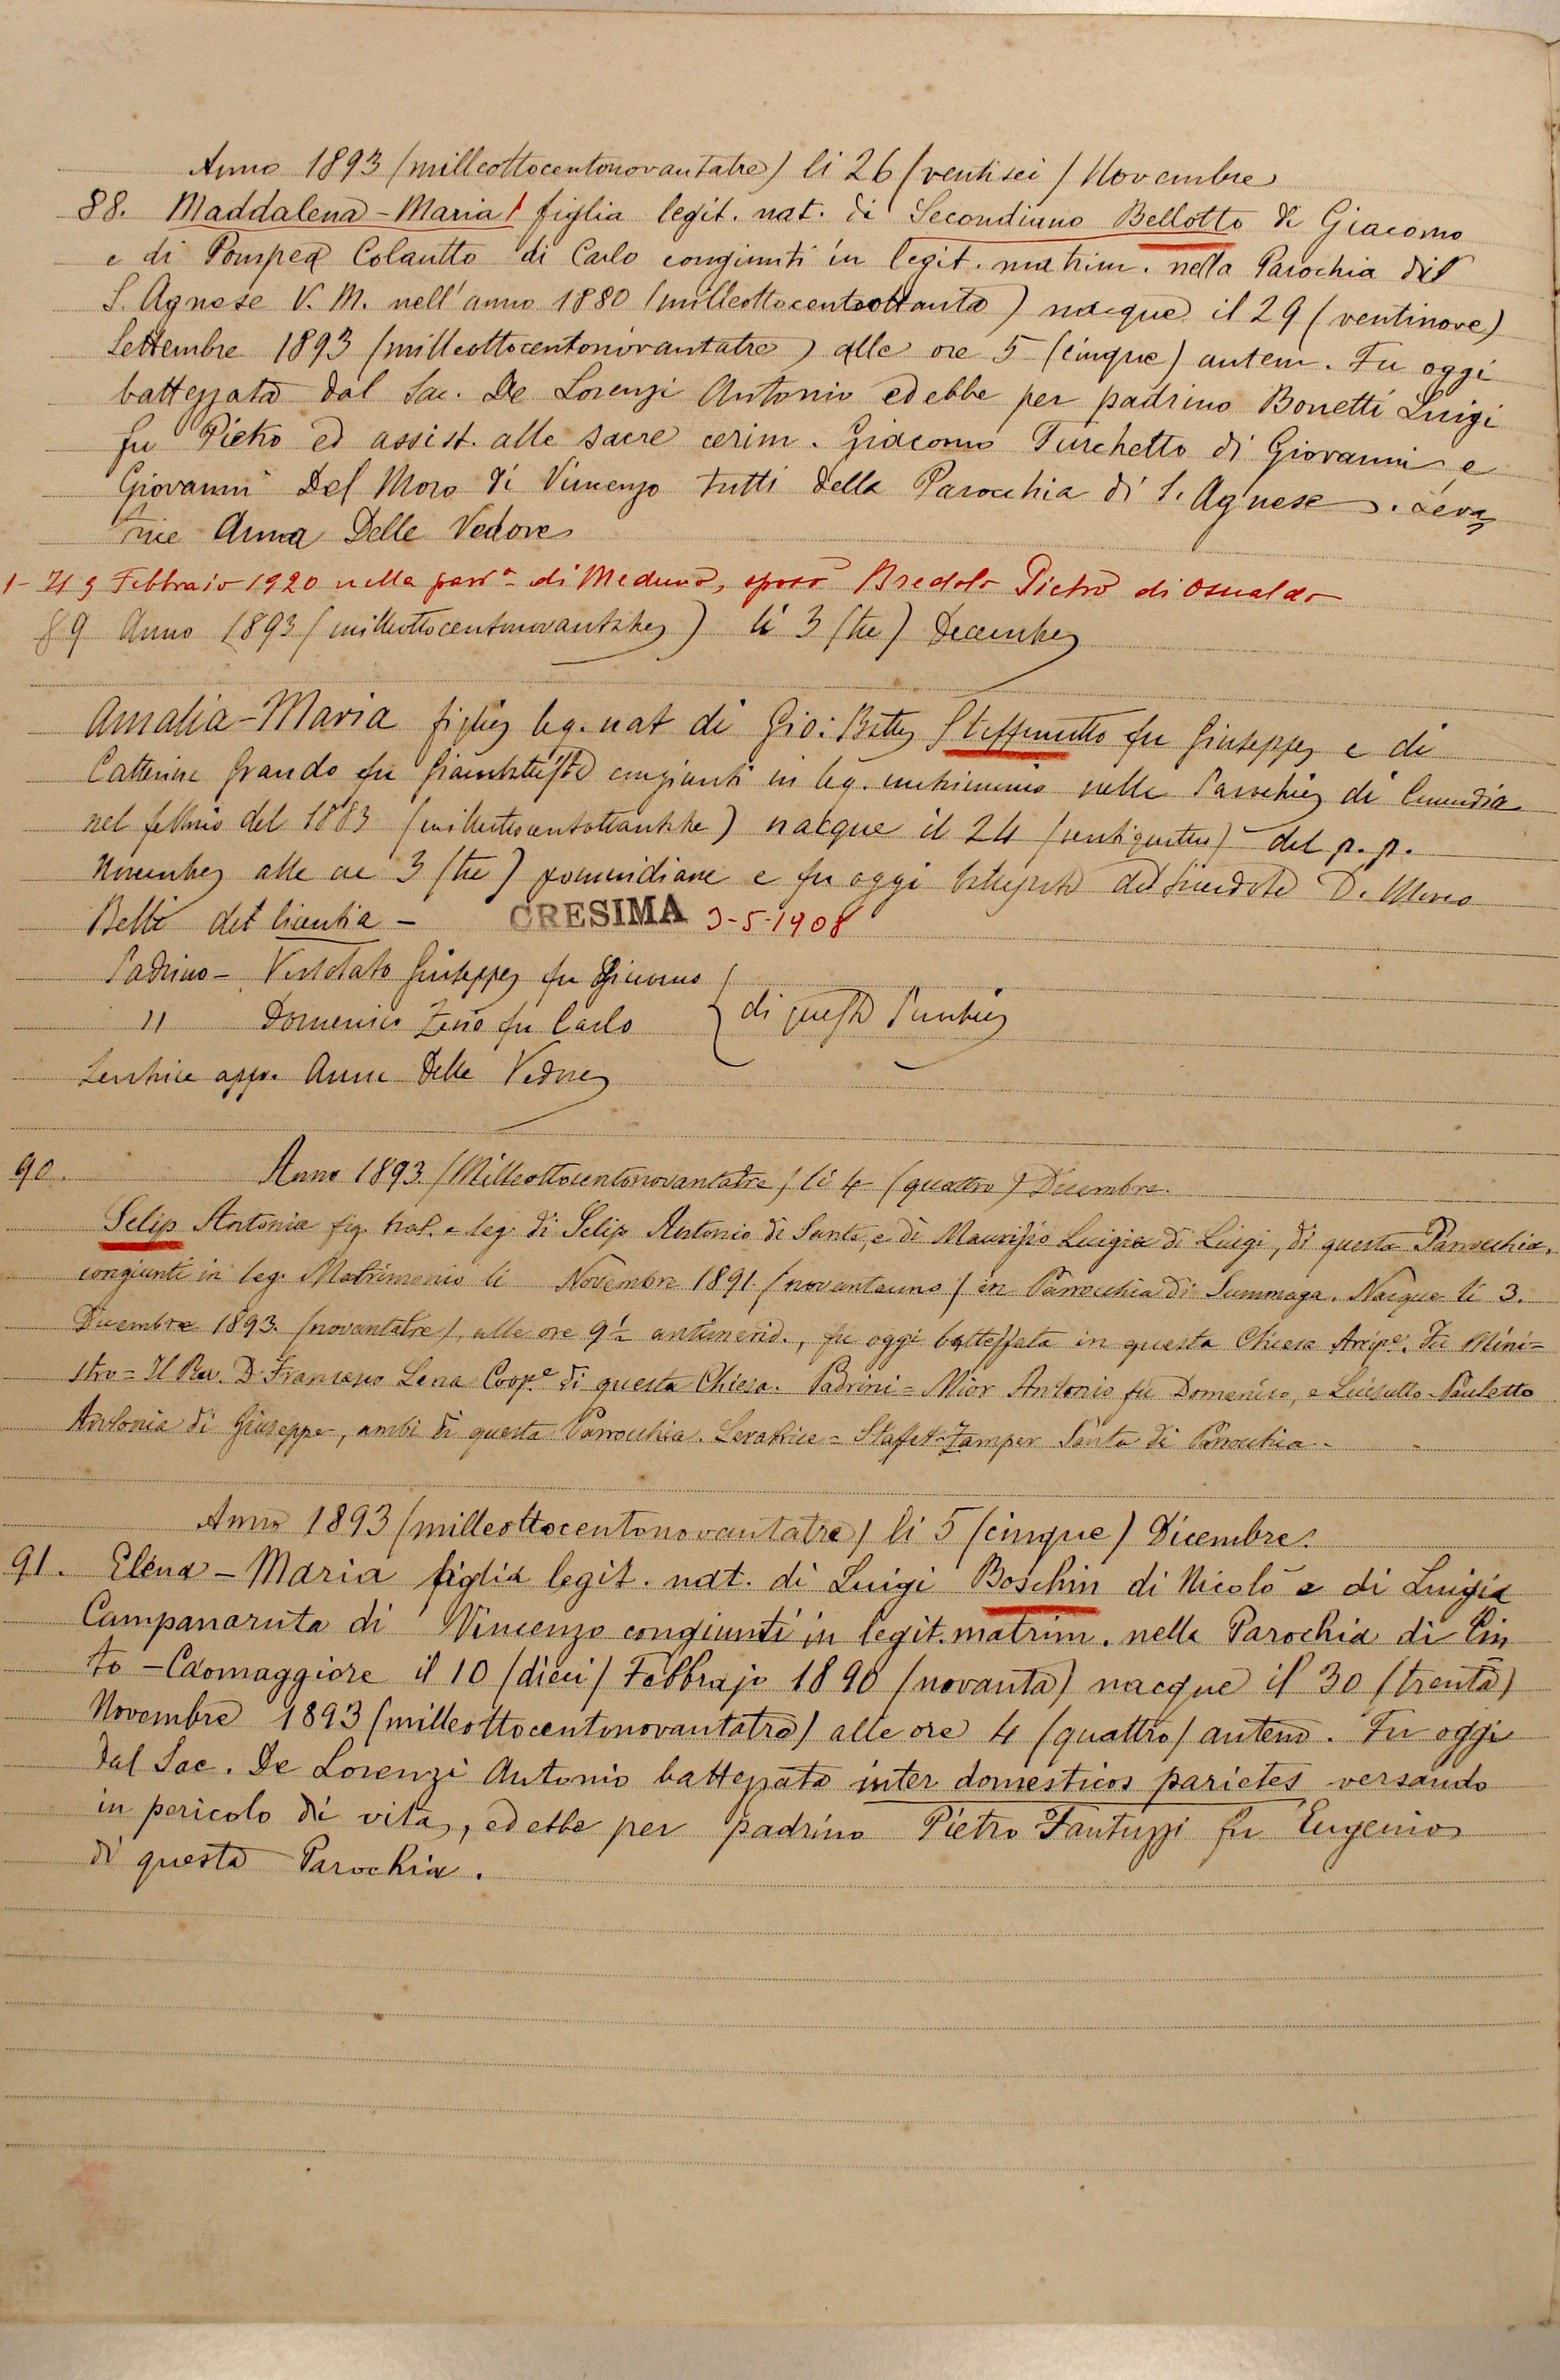 Anno 1893 (milleottocentonovantatre) li 26 (ventisei) Novembre
88. Maddalena - Maria figlia legit. nat. di Secondiano Bellotto di Giacomo
e di Pompea Colautto di Carlo congiunti in legit. matrim. nella Parochia di
S. Agnese V. M. nell'anno 1880 (milleottocentoottanta) nacque il 29 (ventinove)
Settembre 1893 (milleottocentonovantatre) alle ore 5 (cinque) antem. Fu oggi
battezzata dal Sac. De Lorenzi Antonio ed ebbe per padrino Bonetti Luigi
fu Pietro ed assist. alle sacre cerim. Giacomo Turchetto di Giovanni e
Giovanni Del Moro di Vincenzo tutti della Parochia di S. Agnese. Leva
trice Anna Delle Vedove
1- Il 9 Febbraio 1920 nella parr.a di Meduna, sposò Bredolo Pietro di Osualdo
89 Anno 1893 (milleottocentonovantatre) li 3 (tre) Decembre
Amalia - Maria figlia leg. nat di Gio: Batta Steffinutto fu Giuseppe e di
Catterina Grando fu Giambattista congiunti in leg. matrimonio nella Parochia di
nel febbraio del 1883 (milleottocentottantatre) nacque il 24 (ventiquattro) del p. p.
Novembre alle ore 3 (tre) pomeridiane e fu oggi battezzata dal Sacerdote D. Marco
Belli det licentia -
CRESIMA 3-5-1908
Padrino - Giuseppe fu Giacomo
" Domenico Zeno fu Carlo } di questa Parochia
Levatrice appr. Anna Delle Vedove
90. Anno 1893 (Milleottocentonovantatre) li 4 (quattro) Dicembre.
Selip Antonia fig. nat. e leg. di Selip Antonio di Sante, e di Maurizio Luigia di Luigi, di questa Parrocchia,
congiunti in leg. Matrimonio li Novembre 1891. (novantauno) in Parrocchia di Summaga. Nacque li 3.
Dicembre 1893. (novantatre), alle ore 9½ antimerid., fu oggi battezzata in questa Chiesa Arcip.e. Fu Mini=
stro = Il Rev. D. Francesco Lena Coop.e di questa Chiesa. Padrini = Mior Antonio fu Domenico, e Luisutto-Pauletto
Antonia di Giuseppe, ambi di questa Parrocchia. Levatrice = Stafet-Zamper Santa di Parrocchia.
Anno 1893 (milleottocentonovantatre) li 5 (cinque) Dicembre.
91. Elena - Maria figlia legit. nat. di Luigi Boschin di Nicolò e di Luigia
Campanaruta di Vincenzo congiunti in legit. matrim. nella Parochia di Cin
to - Caomaggiore il 10 (dieci) Febbrajo 1890 (novanta) nacque il 30 (trenta)
Novembre 1893 (milleottocentonovantatre) alle ore 4 (quattro) antem. Fu oggi
dal Sac. De Lorenzi Antonio battezzata inter domesticos parietes versando
in pericolo di vita, ed ebbe per padrino Pietro Fantuzzi fu Eugenio
di questa Parochia.